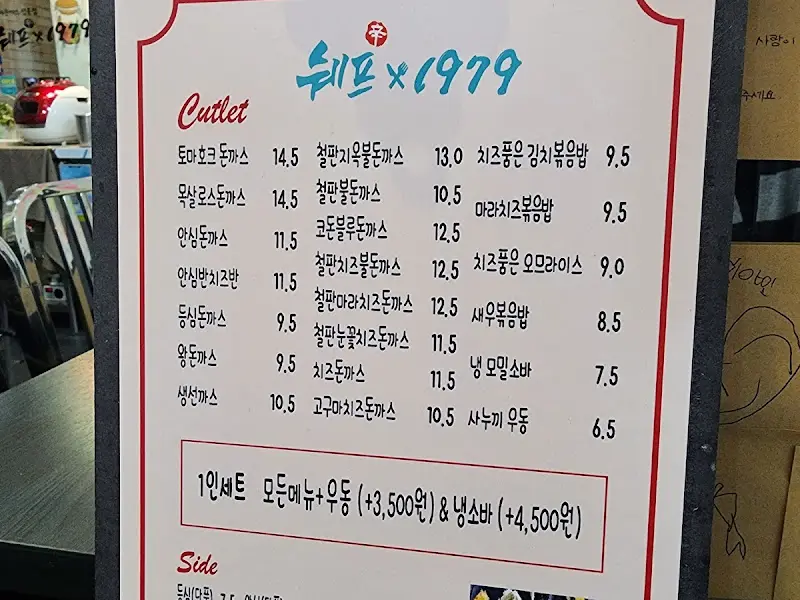 쉐프×1979
辛
쉐프×1979
Cutlet
토마호크 돈까스 14.5
목살로스돈까스 14.5
안심돈까스 11.5
안심반치즈반 11.5
등심돈까스 9.5
왕돈까스 9.5
생선까스 10.5
철판지옥불돈까스 13.0
철판불돈까스 10.5
코돈블루돈까스 12.5
철판치즈불돈까스 12.5
철판마라치즈돈까스 12.5
철판눈꽃치즈돈까스 11.5
치즈돈까스 11.5
고구마치즈돈까스 10.5
치즈품은 김치볶음밥 9.5
마라치즈볶음밥 9.5
치즈품은 오므라이스 9.0
새우볶음밥 8.5
냉 모밀소바 7.5
사누끼 우동 6.5
1인세트 모든메뉴+우동 (+3,500원) & 냉소바 (+4,500원)
Side
등심(단품) 7.5
사람이
주세요.